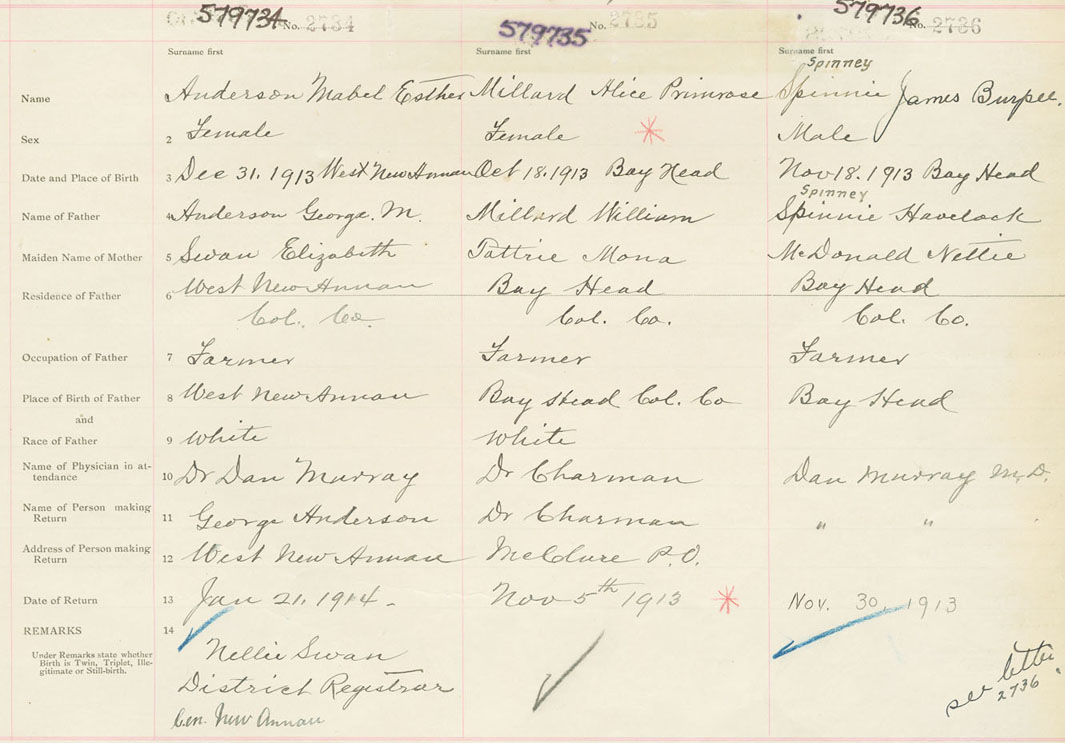 579734 No. 2734 579735 No. 2735 579736 2736
Surname first Surname first Surname first
Spinney
Name Anderson Mabel Esther Millard Alice Primrose Spinnie James Burpee.
Sex 2 Female Female Male
Date and Place of Birth 3 Dec 31. 1913 West New Annan Oct 18. 1913 Bay Head Nov 18. 1913 Bay Head
Spinney
Name of Father 4 Anderson George. M. Millard William Spinnie Havelock
Maiden Name of Mother 5 Swan Elizabeth Tattrie Mona McDonald Nettie
Residence of Father 6 West New Annan Bay Head Bay Head
Col. Co. Col. Co. Col. Co.
Occupation of Father 7 Farmer Farmer Farmer
Place of Birth of Father 8 West New Annan Bay Head Col. Co Bay Head
and
Race of Father 9 White White
Name of Physician in at-
tendance 10 Dr Dan Murray Dr Charman Dan Murray M.D.
Name of Person making
Return 11 George Anderson Dr Charman " "
Address of Person making
Return 12 West New Annan McClure P.O.
Date of Return 13 Jan 21. 1914. Nov 5th 1913 Nov. 30, 1913
REMARKS 14
Under Remarks state whether
Birth is Twin, Triplet, Ille-
gitimate or Still-birth.
Nellie Swan
District Registrar
Cen. New Annan
see letter
2736